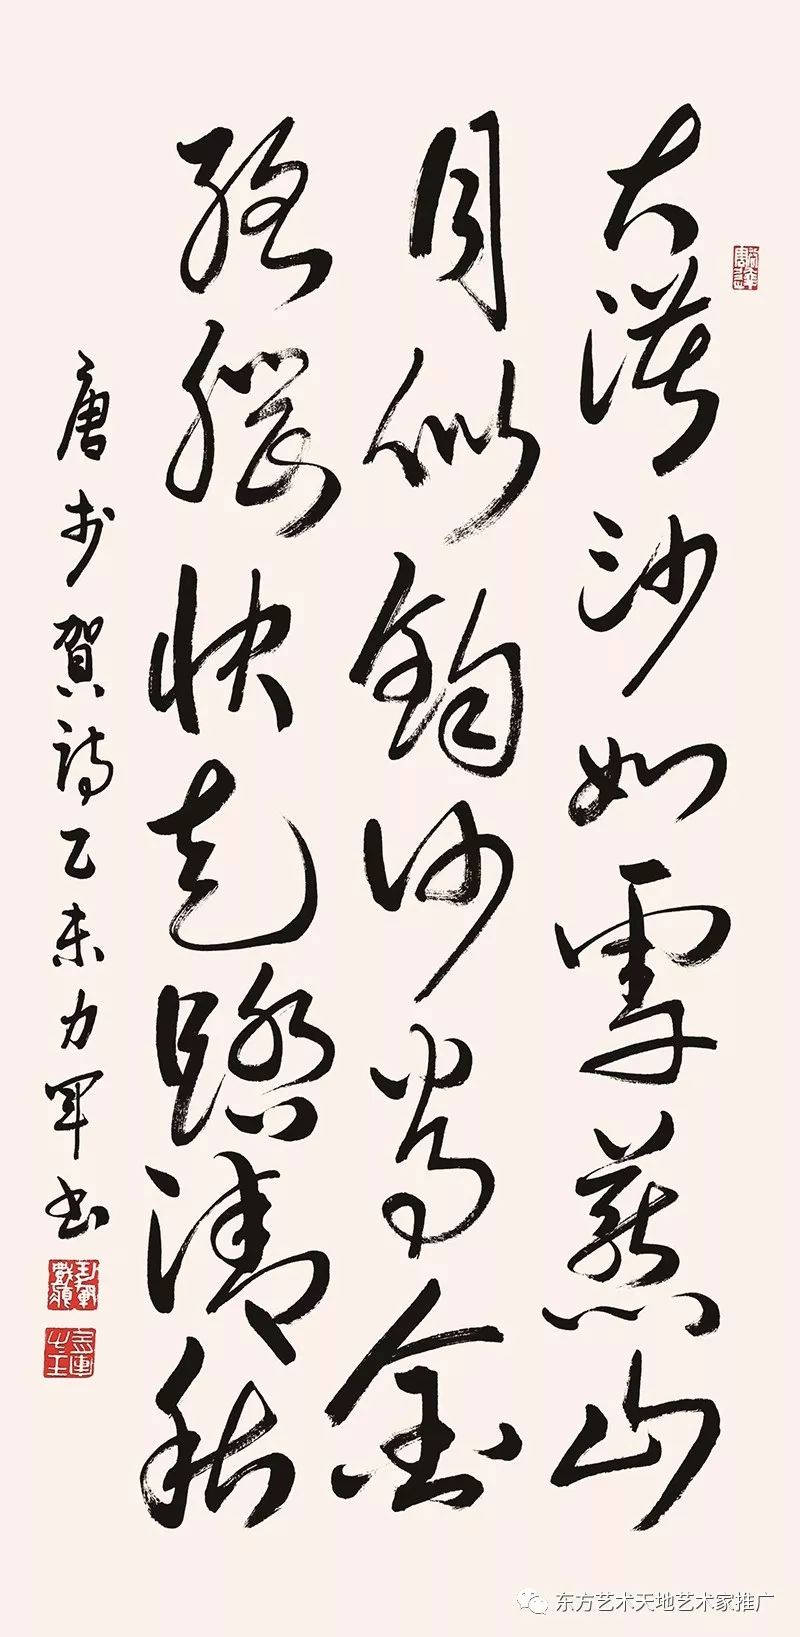 大漠沙如雪燕山
月似鈎何當金
絡腦快走踏清秋
唐李賀詩乙未力軍書
东方艺术天地艺术家推广